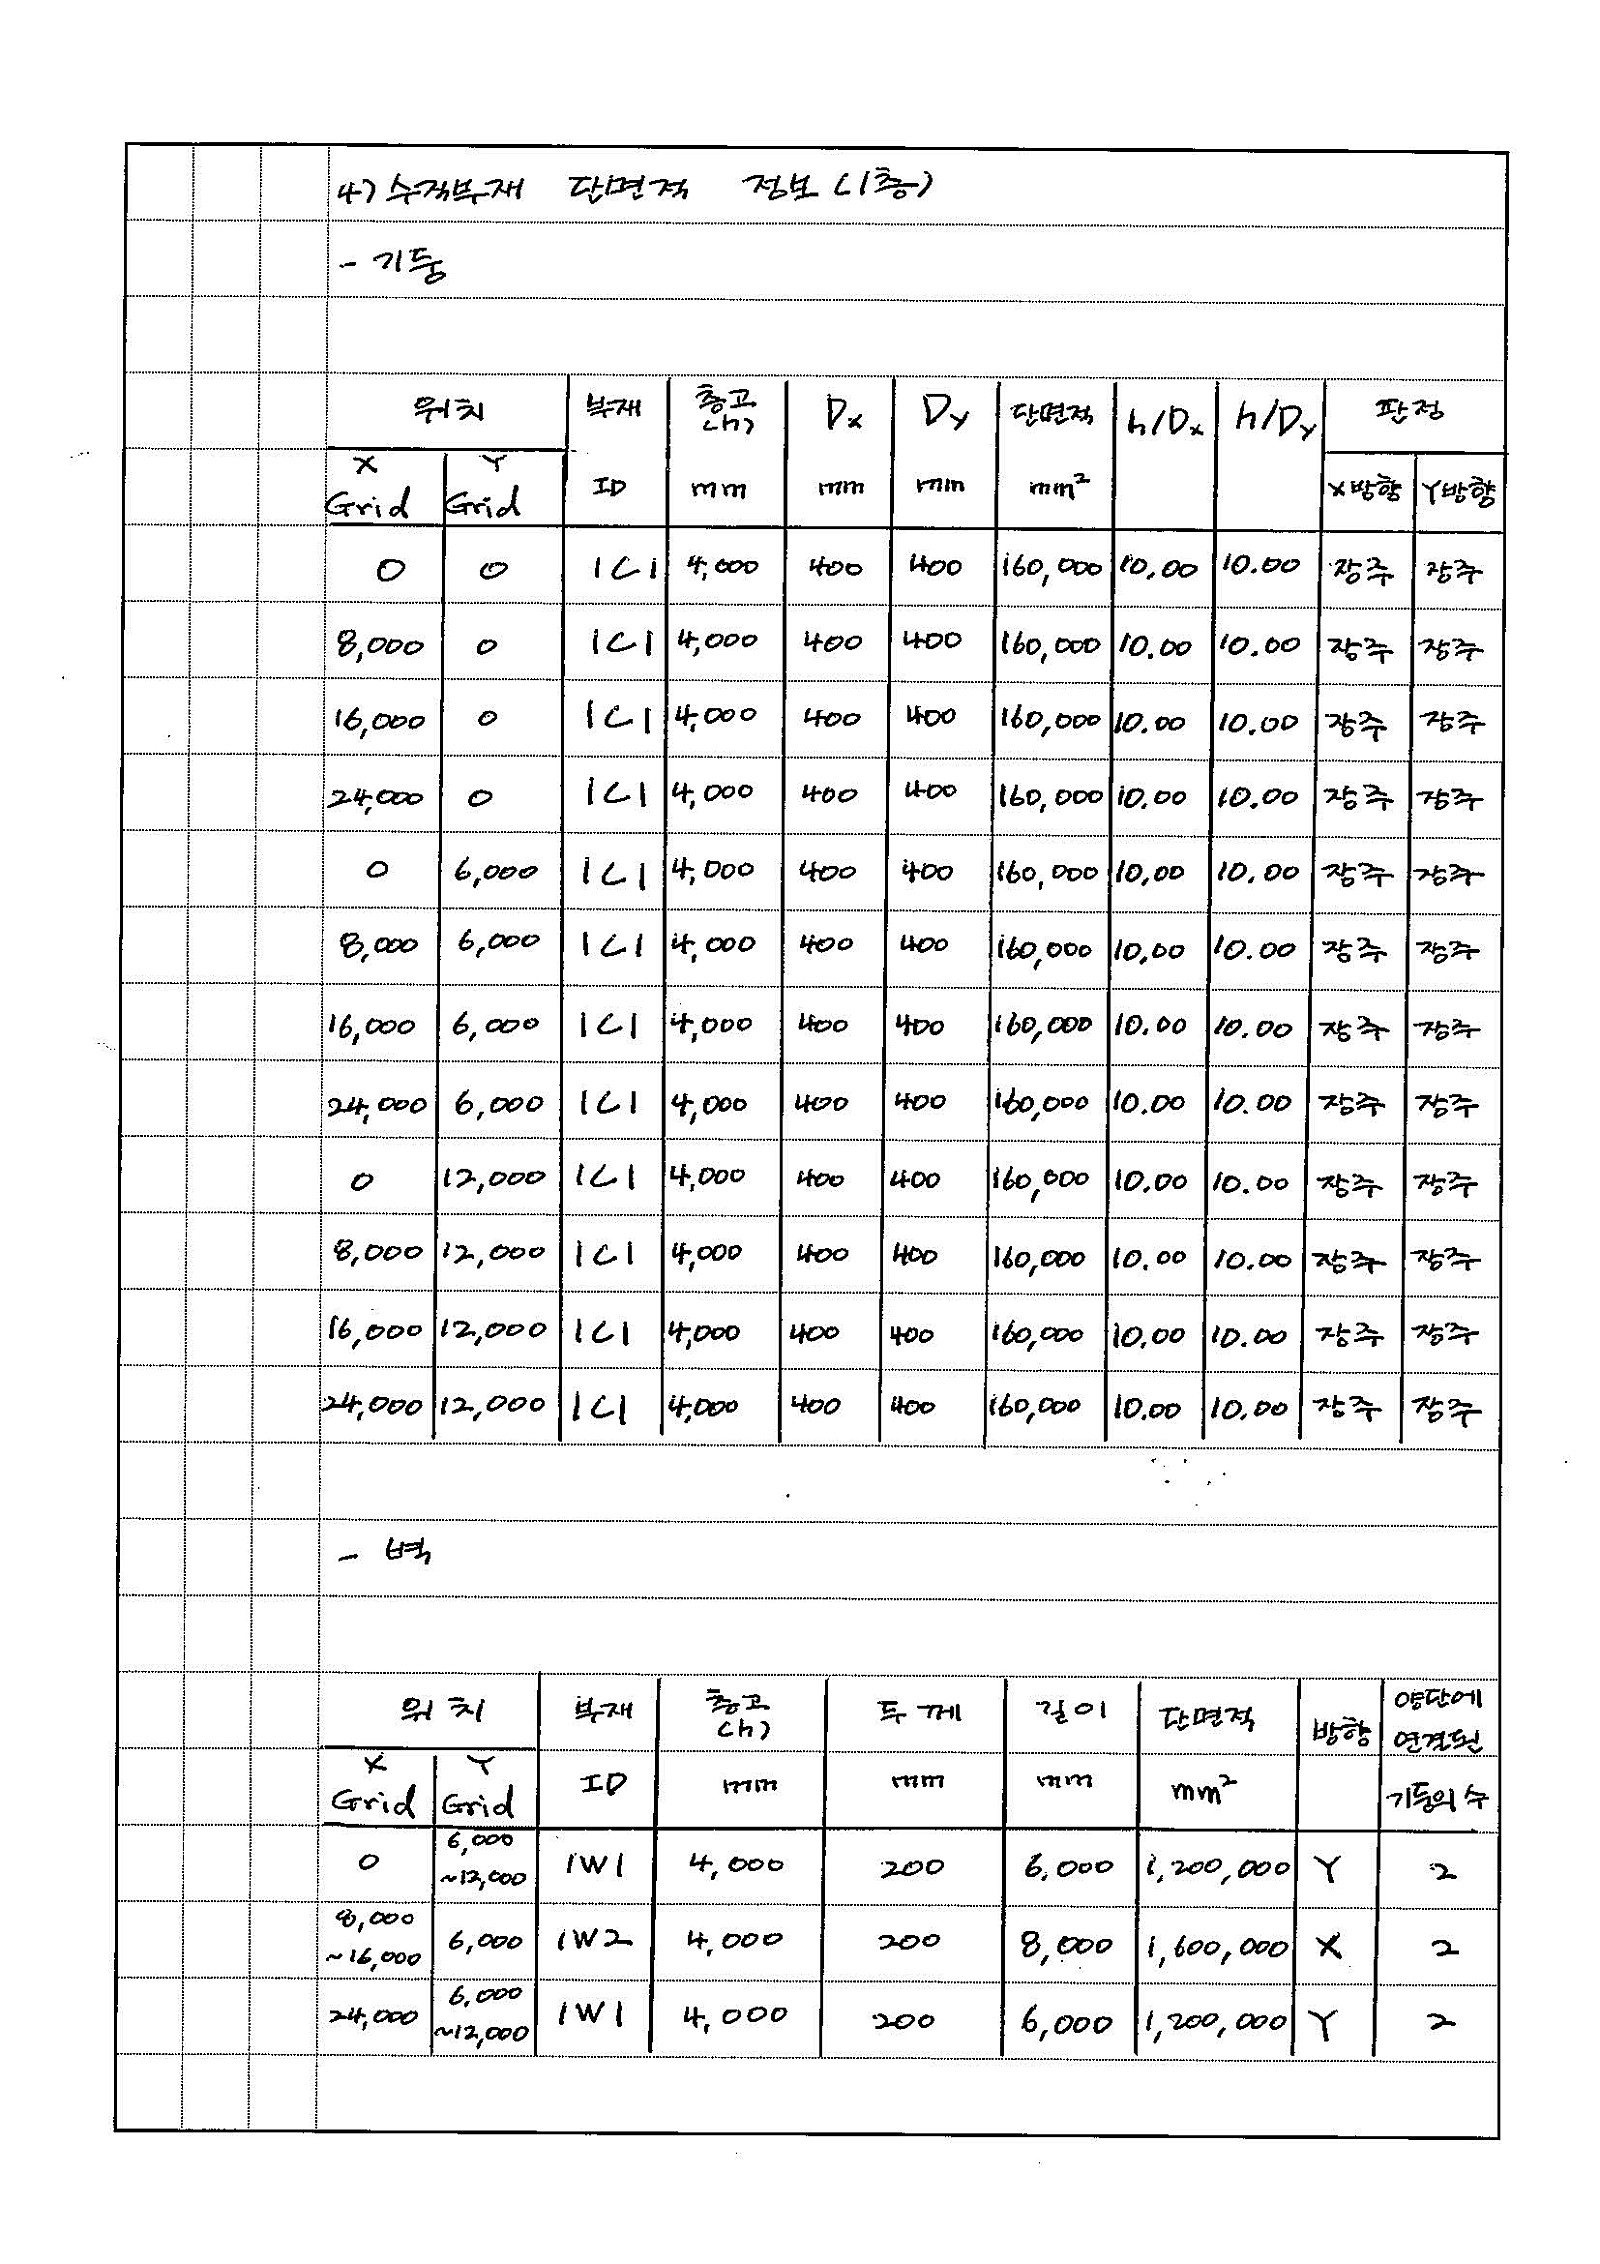 4) 수직부재 단면적 정보(1층)
- 기둥
위치 부재 층고 Dx Dy 단면적 h/Dx h/Dy 판정
(h)
X Y ID mm mm mm mm² X방향 Y방향
Grid Grid
0 0 1C1 4,000 400 400 160,000 10.00 10.00 장주 장주
8,000 0 1C1 4,000 400 400 160,000 10.00 10.00 장주 장주
16,000 0 1C1 4,000 400 400 160,000 10.00 10.00 장주 장주
24,000 0 1C1 4,000 400 400 160,000 10.00 10.00 장주 장주
0 6,000 1C1 4,000 400 400 160,000 10.00 10.00 장주 장주
8,000 6,000 1C1 4,000 400 400 160,000 10.00 10.00 장주 장주
16,000 6,000 1C1 4,000 400 400 160,000 10.00 10.00 장주 장주
24,000 6,000 1C1 4,000 400 400 160,000 10.00 10.00 장주 장주
0 12,000 1C1 4,000 400 400 160,000 10.00 10.00 장주 장주
8,000 12,000 1C1 4,000 400 400 160,000 10.00 10.00 장주 장주
16,000 12,000 1C1 4,000 400 400 160,000 10.00 10.00 장주 장주
24,000 12,000 1C1 4,000 400 400 160,000 10.00 10.00 장주 장주
- 벽
위치 부재 층고 두께 길이 단면적 방향 양단에
(h) 연결된
X Y ID mm mm mm mm² 기둥의 수
Grid Grid
0 6,000 1W1 4,000 200 6,000 1,200,000 Y 2
~12,000
8,000 6,000 1W2 4,000 200 8,000 1,600,000 X 2
~16,000
24,000 6,000 1W1 4,000 200 6,000 1,200,000 Y 2
~12,000